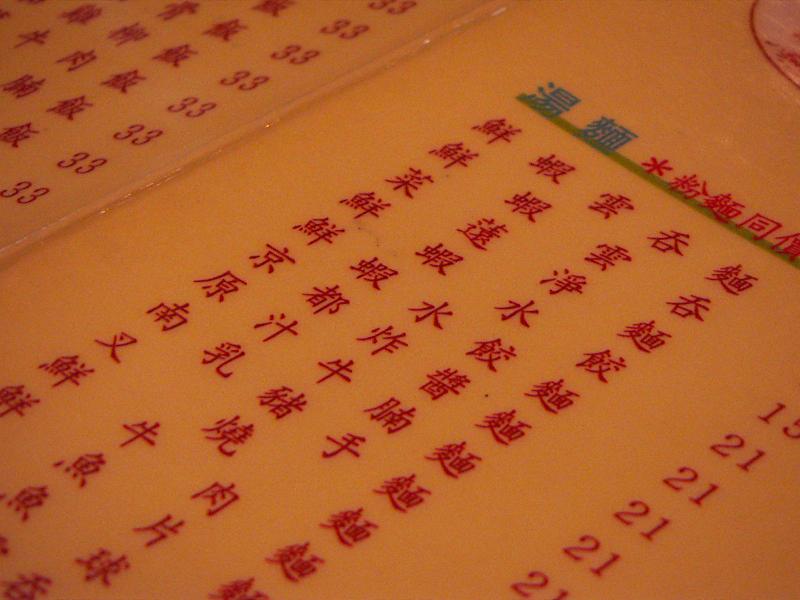 飯 33
骨飯 33
雞柳飯 33
牛肉飯 33
腩飯 33
飯 33
33
33
湯麵 *粉麵同價
鮮蝦雲吞麵
鮮蝦雲吞
菜薳淨麵
鮮蝦水餃
鮮蝦水餃麵 15
京都炸醬麵 21
原汁牛腩麵 21
南乳豬手麵 21
叉燒麵 21
鮮牛肉麵 21
鮮魚片麵
魚球